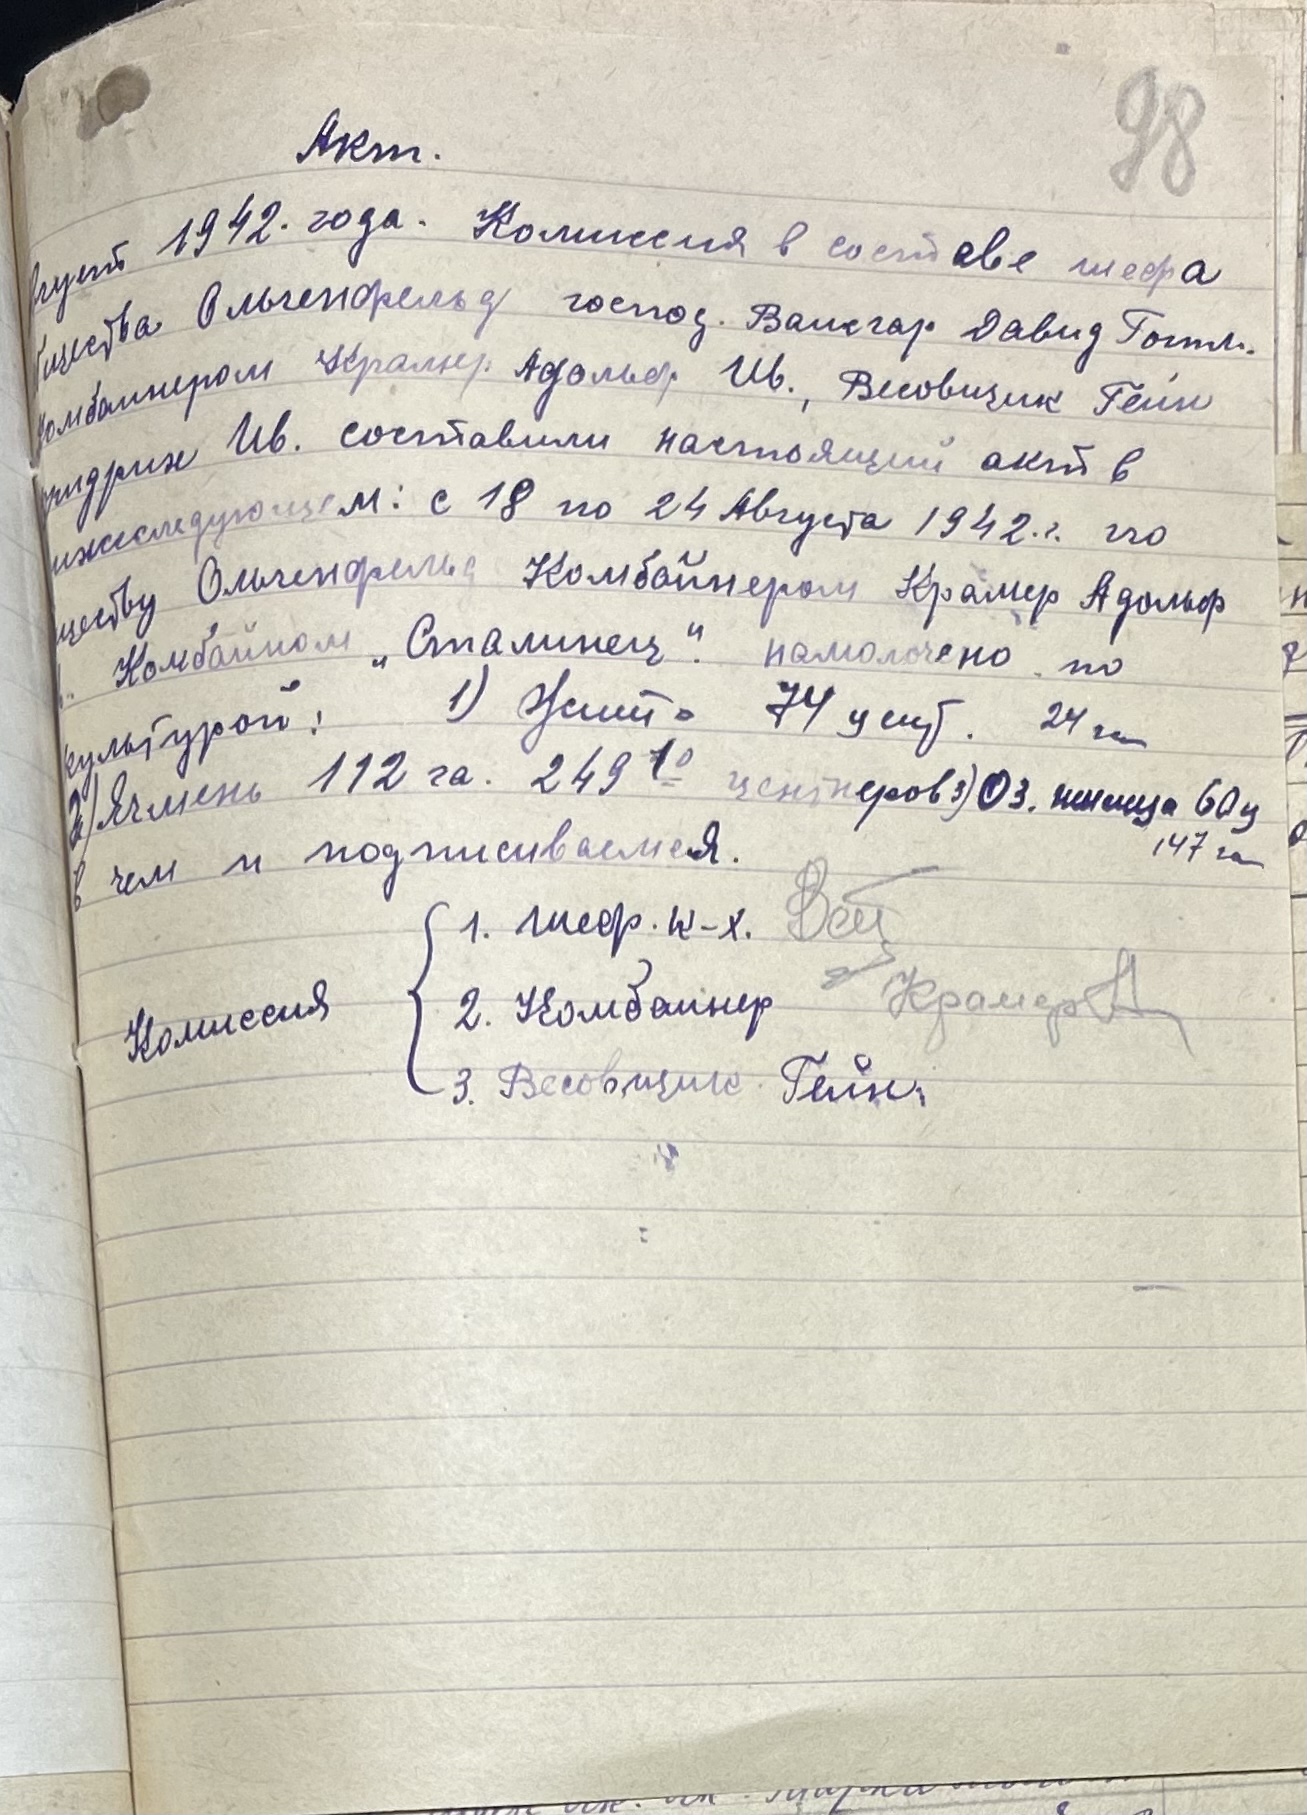 98
Акт.
вгуст 1942. года. Комиссия в составе шефа
бщества Ольгенфельд господ. Давид Готл.
комбайнером Крамер. Адольф Ив., Весовщик Гейн
ридрих Ив. составили настоящий акт в
ижеследующем: с 18 по 24 Августа 1942.г. по
ществу Ольгенфельд Комбайнером Крамер Адольф
в. Комбайном „Сталинец". намолочено по
культурой: 1) Жито 74 цент. 24 га
2) Ячмень 112 га. 249 10 центнеров 3) Оз. пшеница 60 ц
147 га
в чем и подписиваемся.
Комиссия
1. шеф. к-х.
2. Комбайнер Крамер А
3. Весовщик Гейн.